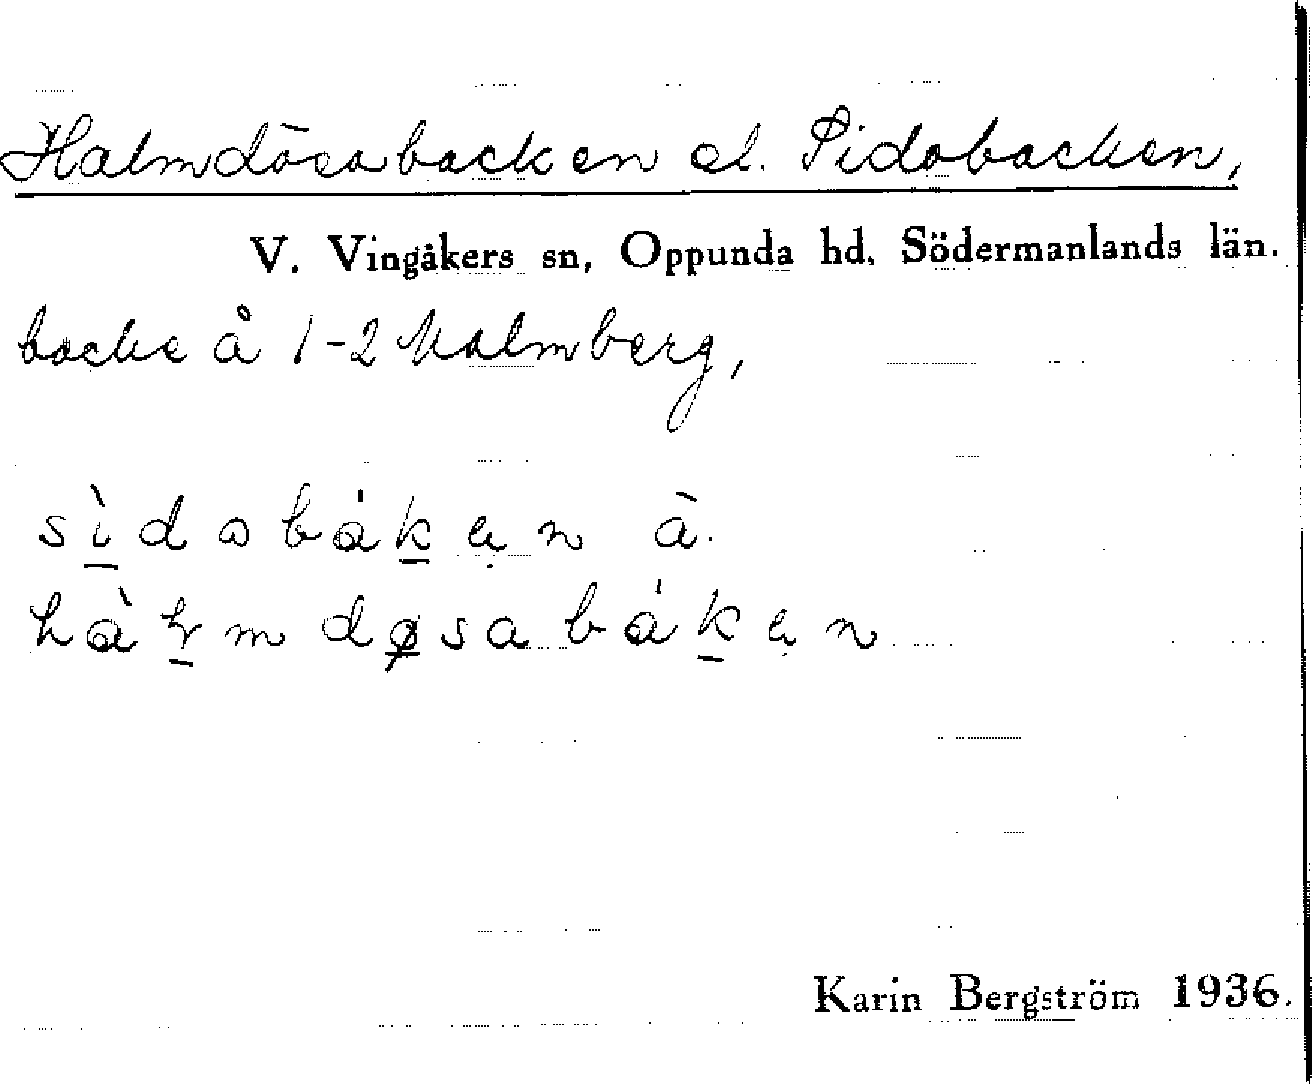 Halmdösabacken el. Sidobacken,
V. Vingåkers sn, Oppunda hd, Södermanlands län.
backe å 1-2 Malmberg,
sìdobákен à.
hàlmdøsabáken
Karin Bergström 1936.